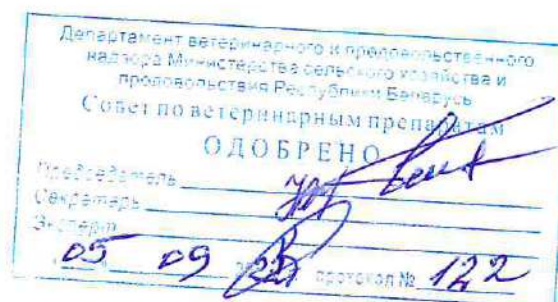 Департамент ветеринарного и продовольственного
надзора Министерства сельского хозяйства и
продовольствия Республики Беларусь
Совет по ветеринарным препаратам
ОДОБРЕНО
Председатель
Секретарь
Эксперт
05 09 протокол № 122